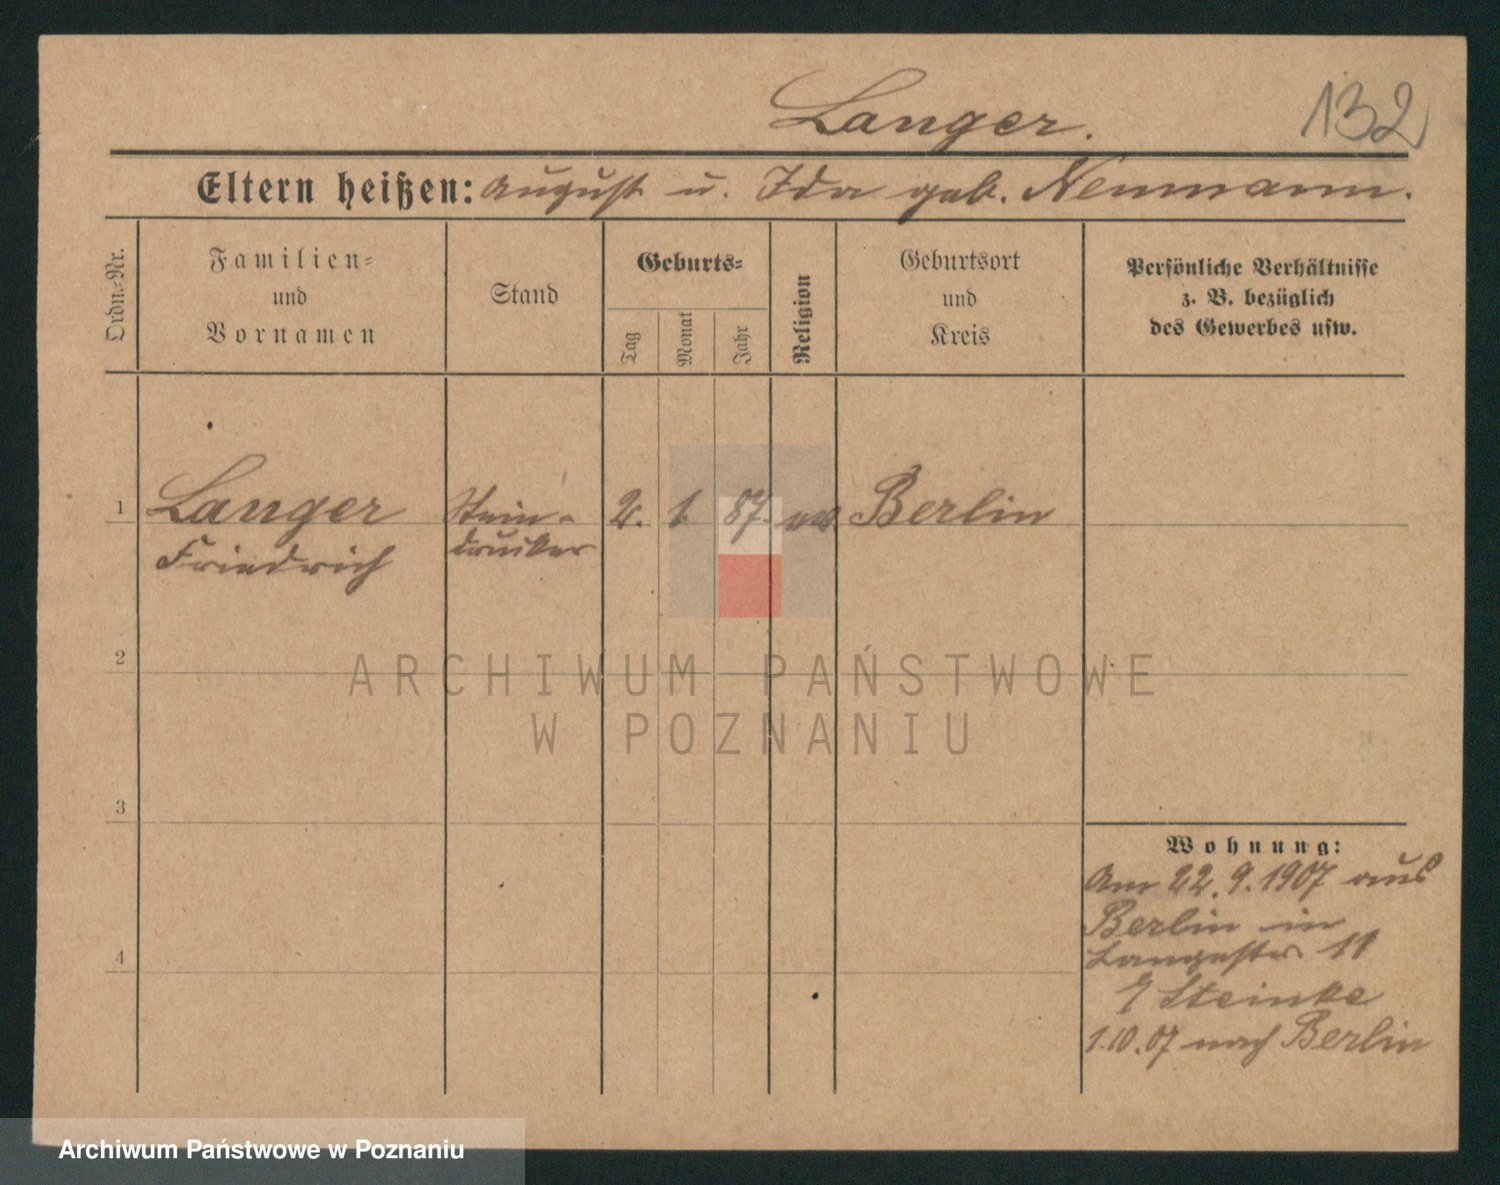 Langer.
132
Eltern heißen: August u. Ida geb. Neumann.
Ordn.-Nr.
Familien-
und
Vornamen
Stand
Geburts-
Tag
Monat
Jahr
Religion
Geburtsort
und
Kreis
Persönliche Verhältnisse
z. B. bezüglich
des Gewerbes usw.
1
Langer
Friedrich
Stein-
drucker
2.
1.
87.
ev
Berlin
2
ARCHIWUM PAŃSTWOWE
W POZNANIU
3
4
Wohnung:
Am 22.9.1907 aus
Berlin in
Langestr. 11
Steinke
1.10.07 nach Berlin
Archiwum Państwowe w Poznaniu